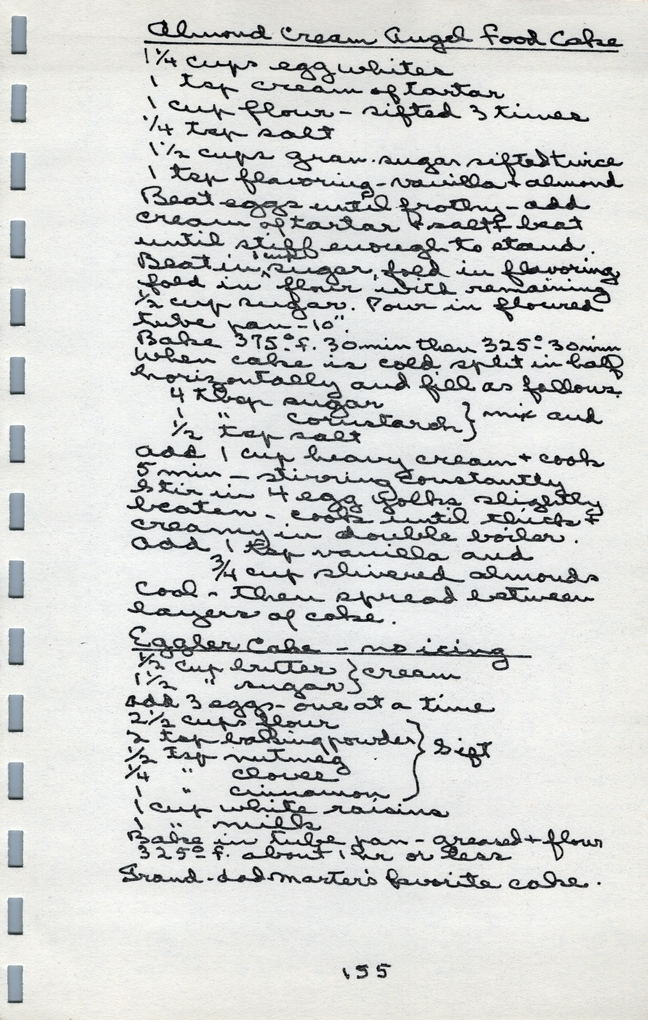 Almond Cream Angel Food Cake
1 1/4 cups egg whites
1 tsp cream of tartar
1 cup flour - sifted 3 times
1/4 tsp salt
1 1/2 cups gran. sugar sifted twice
1 tsp flavoring - vanilla + almond
Beat eggs until frothy - add
cream of tartar + salt + beat
until stiff enough to stand.
Beat in, 1 cup sugar, fold in flavoring
fold in flour with remaining
1/2 cup sugar. Pour in floured
tube pan - 10".
Bake 375° f. 30 min then 325° - 30 min
When cake is cold split in half
horizontally and fill as follows.
4 tbsp sugar
1 " cornstarch } mix and
1/2 tsp salt
add 1 cup heavy cream + cook
5 min - stirring constantly
Stir in 4 egg yolks slightly
beaten - cook until thick +
creamy in double boiler.
add 1 tsp vanilla and
3/4 cup slivered almonds
Cool - then spread between
layers of cake.
Eggler Cake - no icing
1/2 cup butter } cream
1 1/2 " sugar }
add 3 eggs - one at a time
2 1/2 cups flour
2 tsp baking powder } Sift
1/2 tsp nutmeg
1/4 " cloves
1 " cinnamon
1 cup white raisins
1 " milk
Bake in tube pan - greased + flour
325° f. about 1 hr or less
Grand-dad Marter's favorite cake.
155